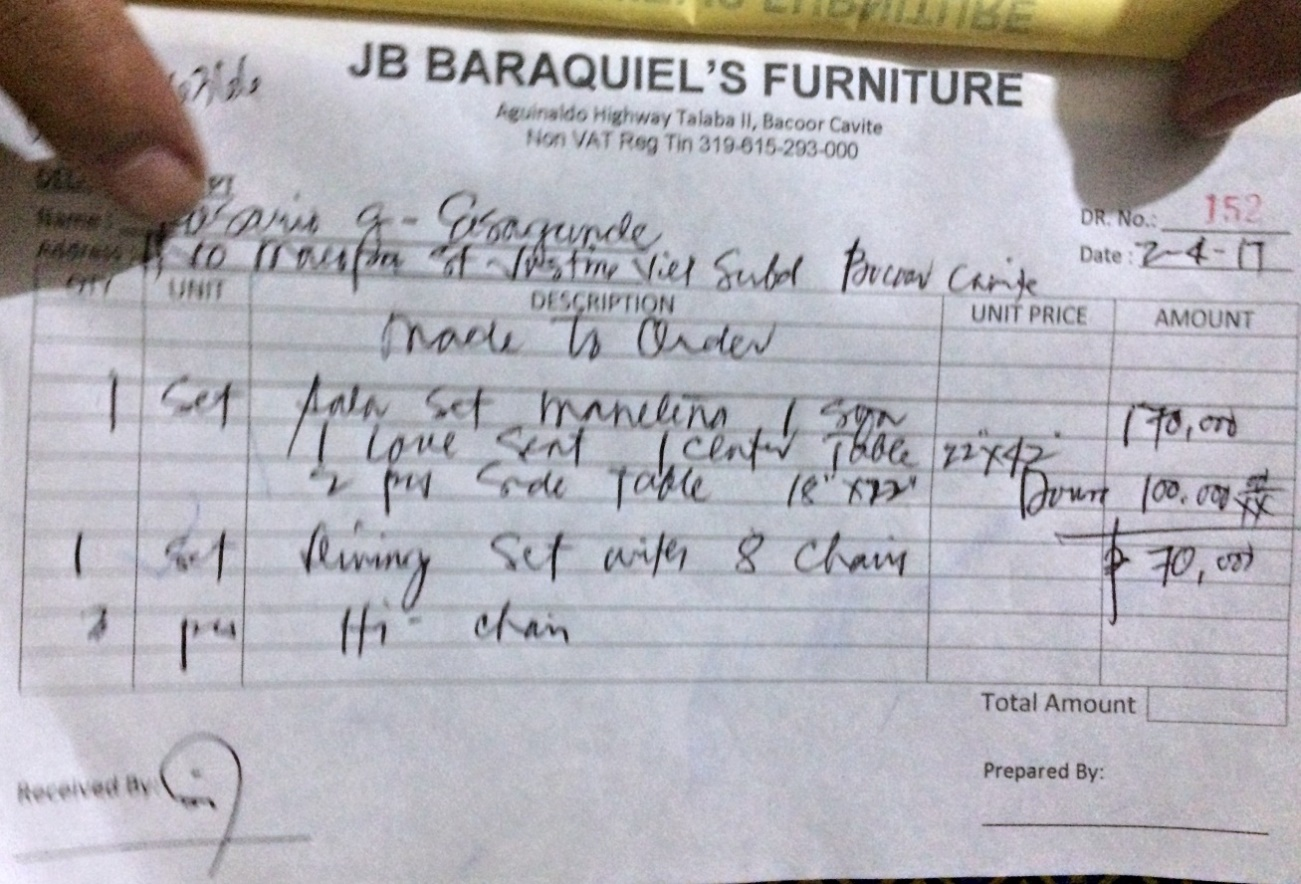 JB BARAQUIEL'S FURNITURE
Aguinaldo Highway Talaba II, Bacoor Cavite
Non VAT Reg Tin 319-615-293-000
Name:
DR. No.: 152
Address
Date: 2-4-17
10 St Subd Bacoor Cavite
QTY UNIT DESCRIPTION UNIT PRICE AMOUNT
Made To Order
1 Set Sala Set 1 170,000
1 Love Seat 1 Center Table 22"x42"
2 pcs Side Table 18"x22" Down 100,000
1 Set Dining Set with 8 Chairs 70,000
pcs Hi-chair
Total Amount
Received By:
Prepared By: